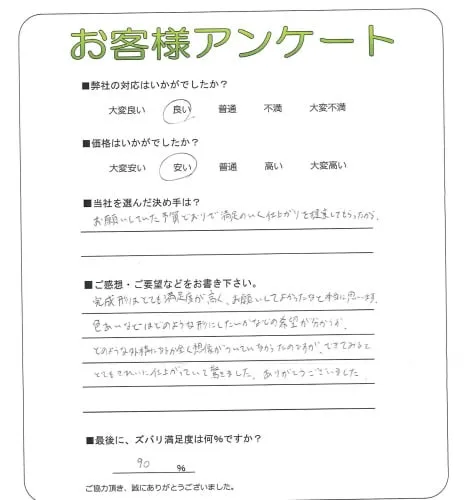 お客様アンケート
■弊社の対応はいかがでしたか？
大変良い 良い 普通 不満 大変不満
■価格はいかがでしたか？
大変安い 安い 普通 高い 大変高い
■当社を選んだ決め手は？
お願いしていた予算どおりで満足のいく仕上がりを提案してもらったから。
■ご感想・ご要望などをお書き下さい。
完成形はとても満足度が高く、お願いしてよかったなと本当に思います。
色あいなどはどのような形にしたいかなどの希望が分かりが、
どのような外構になるか全く想像がついていなかったのですが、できてみると
とてもきれいに仕上がっていて驚きました。ありがとうございました。
■最後に、ズバリ満足度は何％ですか？
90 ％
ご協力頂き、誠にありがとうございました。